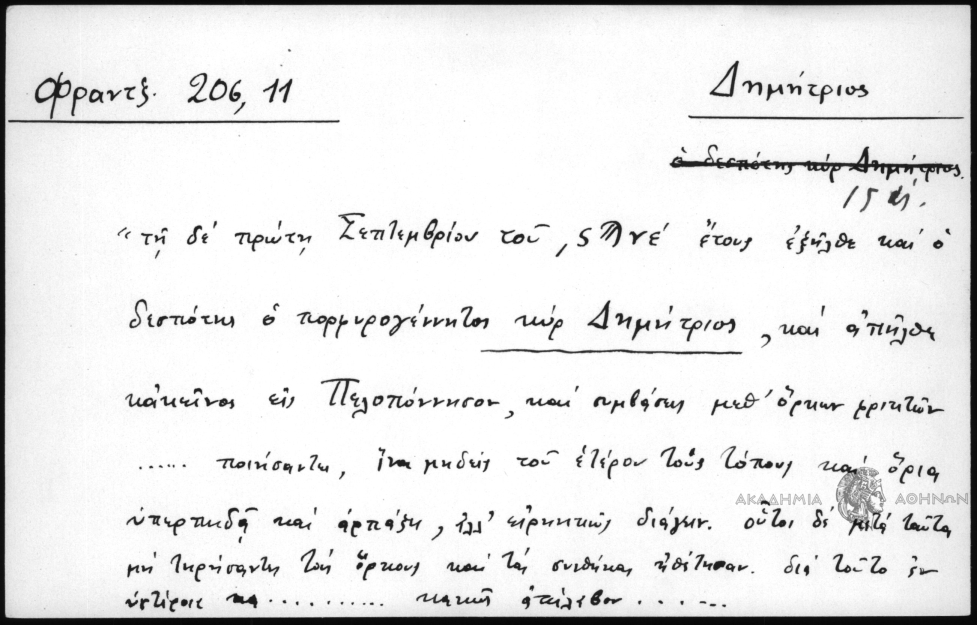 Φραντζ. 206, 11
Δημήτριος
ὁ δεσπότης κύρ Δημήτριος.
"τῇ δέ πρώτῃ Σεπτεμβρίου τοῦ ,ςϠνέ ἔτους ἐξῆλθε καί ὁ
δεσπότης ὁ πορφυρογέννητος κύρ Δημήτριος, καί ἀπῆλθε
κἀκεῖνος εἰς Πελοπόννησον, καί συμβάσεις μεθ' ὅρκων φρικτῶν
...... ποιήσαντες, ἵνα μηδείς τοῦ ἑτέρου τούς τόπους καί ὅρια
ΑΚΑΔΗΜΙΑ ΑΘΗΝΩΝ
ὑπερπηδᾷ καί ἁρπάξῃ, ἀλλ' εἰρηνικῶς διάγειν. οὗτοι δέ μετά ταῦτα
μή τηρήσαντες τούς ὅρκους καί τάς συνθήκας ἠθέτησαν. διά τοῦτο ἐν
ὑστέροις .......... κακῶς ἀπέλαβον .......